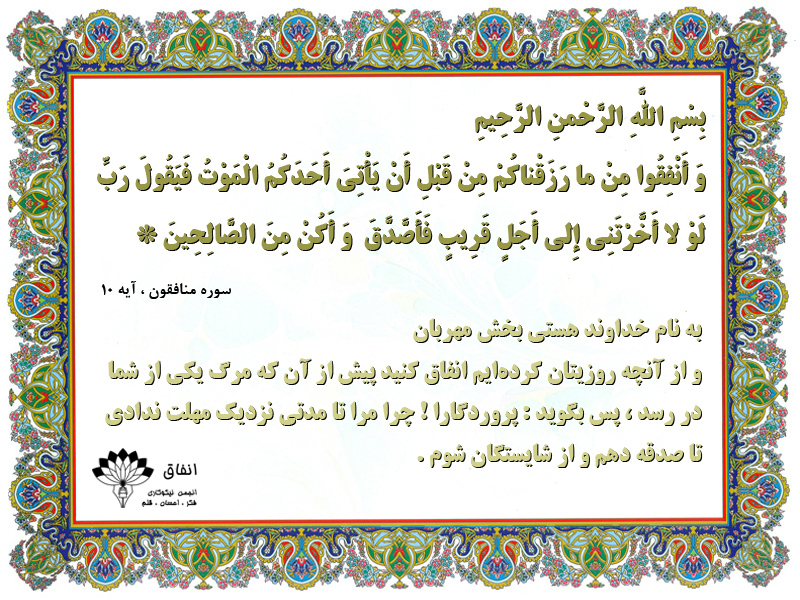 بِسْمِ اللَّهِ الرَّحْمنِ الرَّحِيمِ
وَ أَنْفِقُوا مِنْ ما رَزَقْناكُمْ مِنْ قَبْلِ أَنْ يَأْتِيَ أَحَدَكُمُ الْمَوْتُ فَيَقُولَ رَبِّ
لَوْ لا أَخَّرْتَنِی إِلی أَجَلٍ قَرِیبٍ فَأَصَّدَّقَ وَ أَكُنْ مِنَ الصَّالِحِینَ *
سوره منافقون ، آیه ۱۰
به نام خداوند هستی بخش مهربان
و از آنچه روزیتان کرده‌ایم انفاق کنید پیش از آن که مرگ یکی از شما
در رسد ، پس بگوید : پروردگارا ! چرا مرا تا مدتی نزدیک مهلت ندادی
تا صدقه دهم و از شایستگان شوم .
انفاق
انجمن نیکوکاری
فکر ، احسان ، قلم